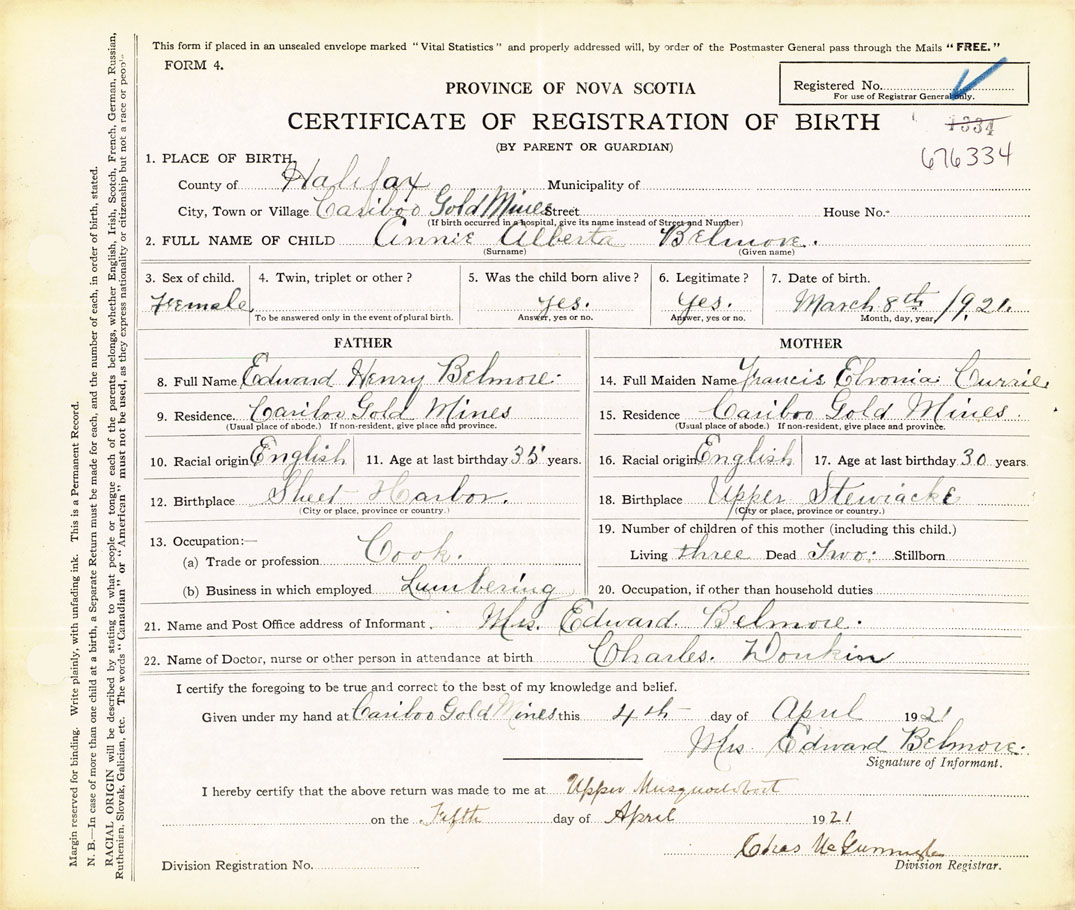 This form if placed in an unsealed envelope marked "Vital Statistics" and properly addressed will, by order of the Postmaster General pass through the Mails "FREE."
FORM 4.
Registered No.
For use of Registrar General only.
PROVINCE OF NOVA SCOTIA
CERTIFICATE OF REGISTRATION OF BIRTH
1334
(BY PARENT OR GUARDIAN)
676334
1. PLACE OF BIRTH,
County of Halifax Municipality of
City, Town or Village Cariboo Gold Mines Street House No.
(If birth occurred in a hospital, give its name instead of Street and Number)
2. FULL NAME OF CHILD Annie Alberta Belmore.
(Surname) (Given name)
3. Sex of child. 4. Twin, triplet or other? 5. Was the child born alive? 6. Legitimate? 7. Date of birth.
Female Yes. Yes. March 8th 1921.
To be answered only in the event of plural birth. Answer, yes or no. Answer, yes or no. Month, day, year,
FATHER MOTHER
8. Full Name Edward Henry Belmore. 14. Full Maiden Name Francis Elvonia Currie.
9. Residence. Cariboo Gold Mines 15. Residence Cariboo Gold Mines.
(Usual place of abode.) If non-resident, give place and province. (Usual place of abode.) If non-resident, give place and province.
10. Racial origin English 11. Age at last birthday 35 years. 16. Racial origin English 17. Age at last birthday 30 years.
12. Birthplace Sheet Harbor. 18. Birthplace Upper Stewiacke
(City or place, province or country.) (City or place, province or country.)
13. Occupation:— 19. Number of children of this mother (including this child.)
(a) Trade or profession Cook. Living three Dead Two. Stillborn
(b) Business in which employed Lumbering 20. Occupation, if other than household duties
21. Name and Post Office address of Informant. Mrs. Edward Belmore.
22. Name of Doctor, nurse or other person in attendance at birth Charles. Donkin
I certify the foregoing to be true and correct to the best of my knowledge and belief.
Given under my hand at Cariboo Gold Mines this 4th day of April 1921
Mrs. Edward Belmore.
Signature of Informant.
I hereby certify that the above return was made to me at Upper Musquodoboit
on the Fifth day of April 1921
Chas
Division Registration No. Division Registrar.
Margin reserved for binding. Write plainly, with unfading ink. This is a Permanent Record.
N. B.—In case of more than one child at a birth, a Separate Return must be made for each, and the number of each, in order of birth, stated.
RACIAL ORIGIN will be described by stating to what people or tongue each of the parents belongs, whether English, Irish, Scotch, French, German, Russian,
Ruthenian, Slovak, Galician, etc. The words "Canadian" or "American" must not be used, as they express nationality or citizenship but not a race or people